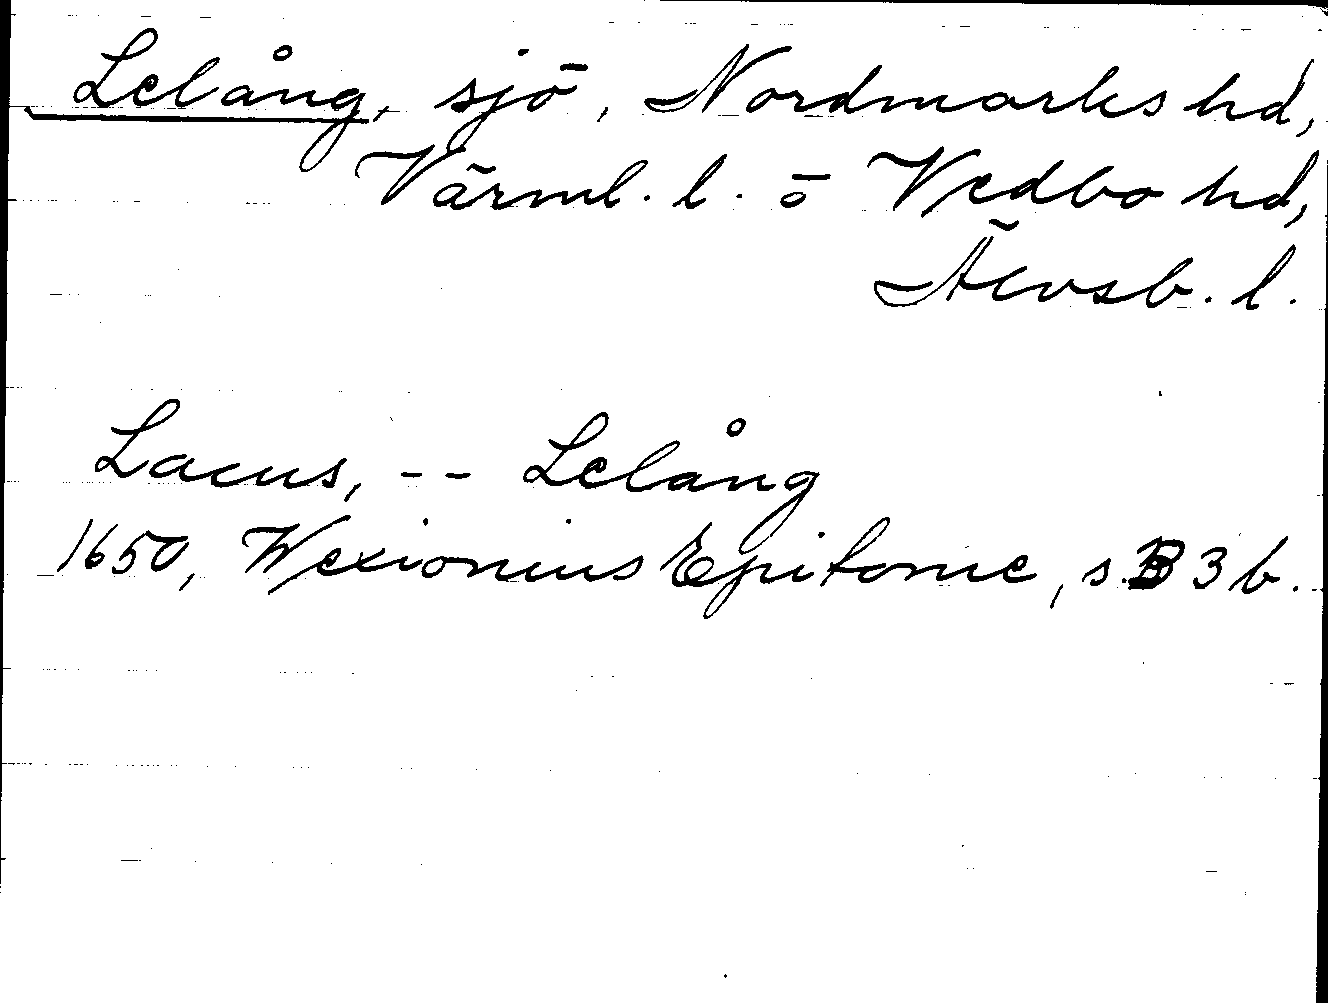 Lelång, sjö, Nordmarks hd,
Värml. l. o Vedbo hd,
Älvsb. l.
Lacus, -- Lelång
1650, Wexionius Epitome, s. B 3 b.